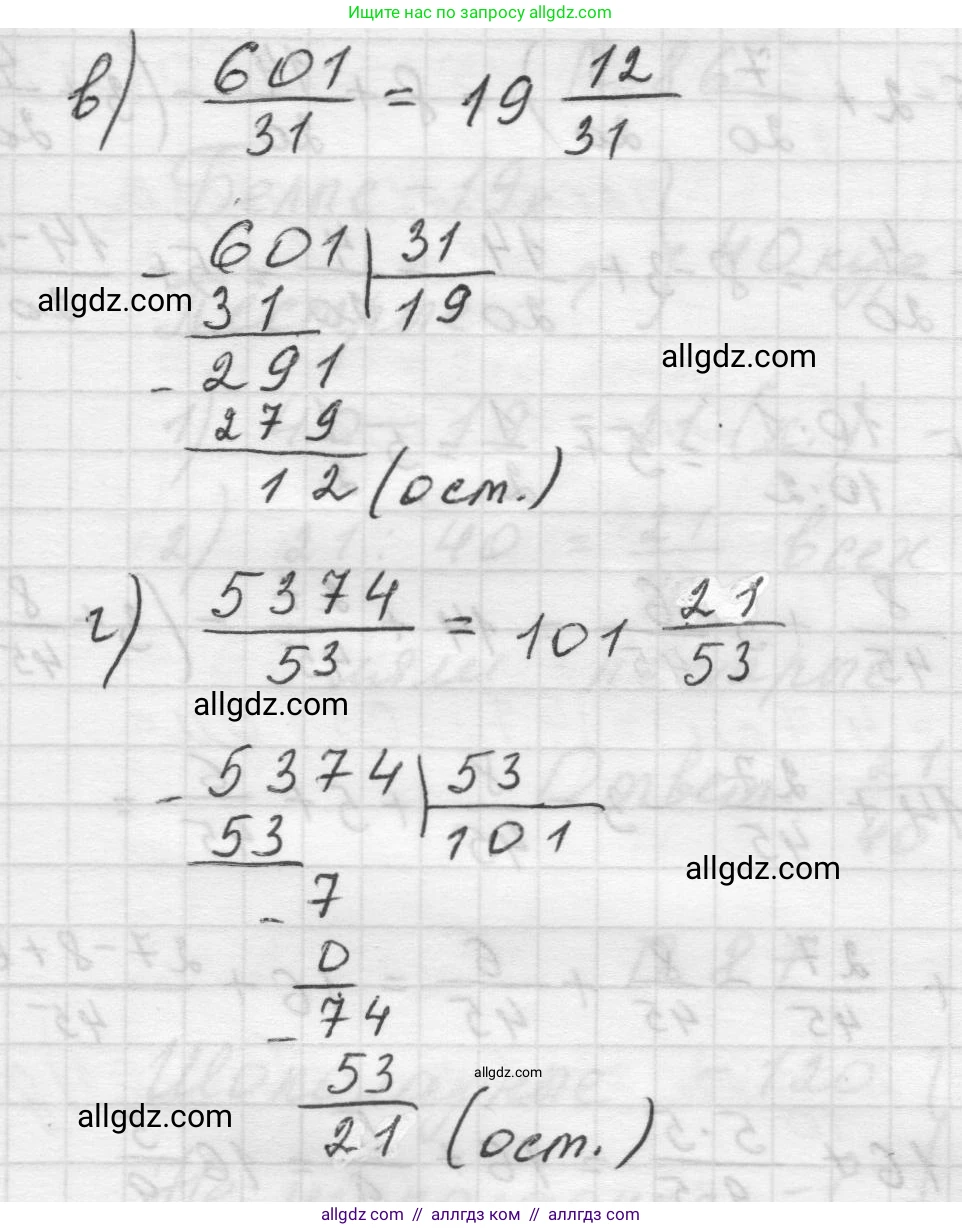 Ищите нас по запросу allgdz.com
в) 601/31 = 19 12/31
- 601 | 31
allgdz.com 31 19
- 291 allgdz.com
279
12 (ост.)
г) 5374/53 = 101 21/53
allgdz.com
- 5374 | 53
53 101
- 7 allgdz.com
0
- 74
53 allgdz.com
allgdz.com 21 (ост.)
allgdz.com // аллгдз ком // allgdz.com